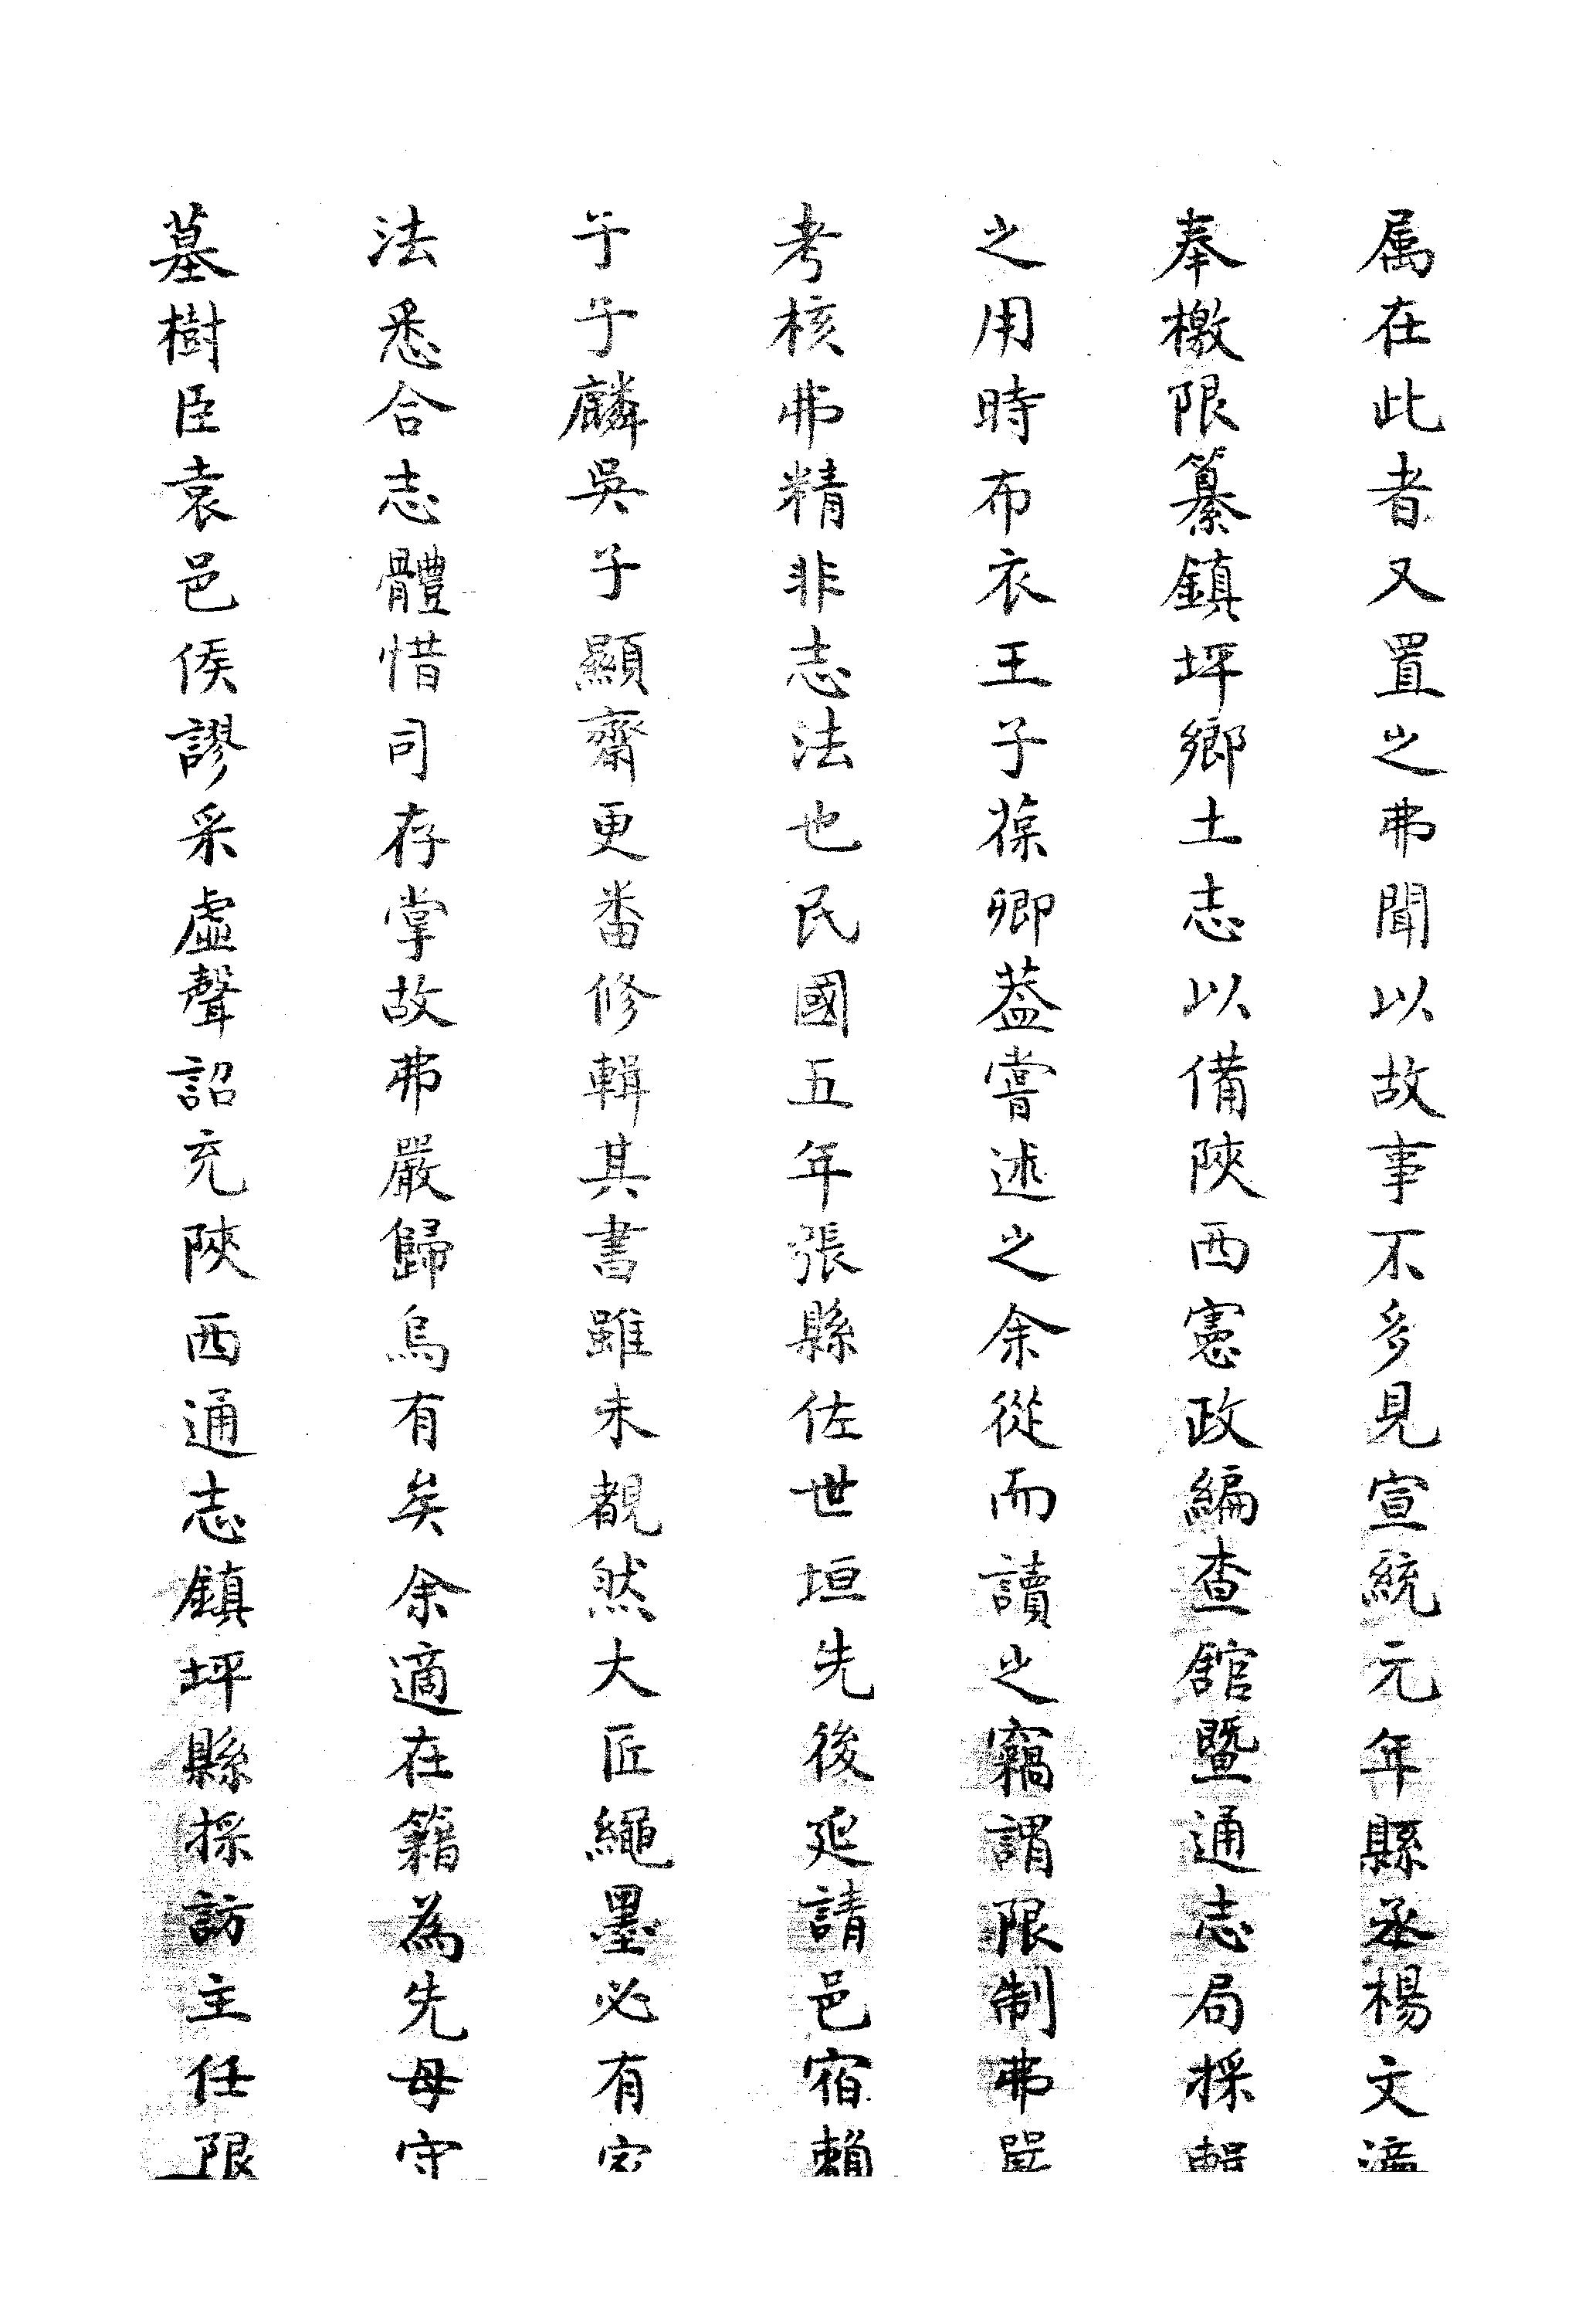 属在此者又置之弗聞以故事不多見宣統元年縣丞楊文
奉檄限纂鎮坪鄉土志以備陝西憲政編查舘暨通志局採輯
之用時布衣王子葆卿蓋嘗述之余從而讀之竊謂限制弗嚴
考核弗精非志法也民國五年張縣佐世垣先後延請邑宿賴
子子麟吳子顯齋更畨修輯其書雖未覩然大匠繩墨必有家
法悉合志體惜司存掌故弗嚴歸烏有矣余適在籍為先母守
墓樹臣袁邑侯謬采虛聲詔充陝西通志鎮坪縣採訪主任限